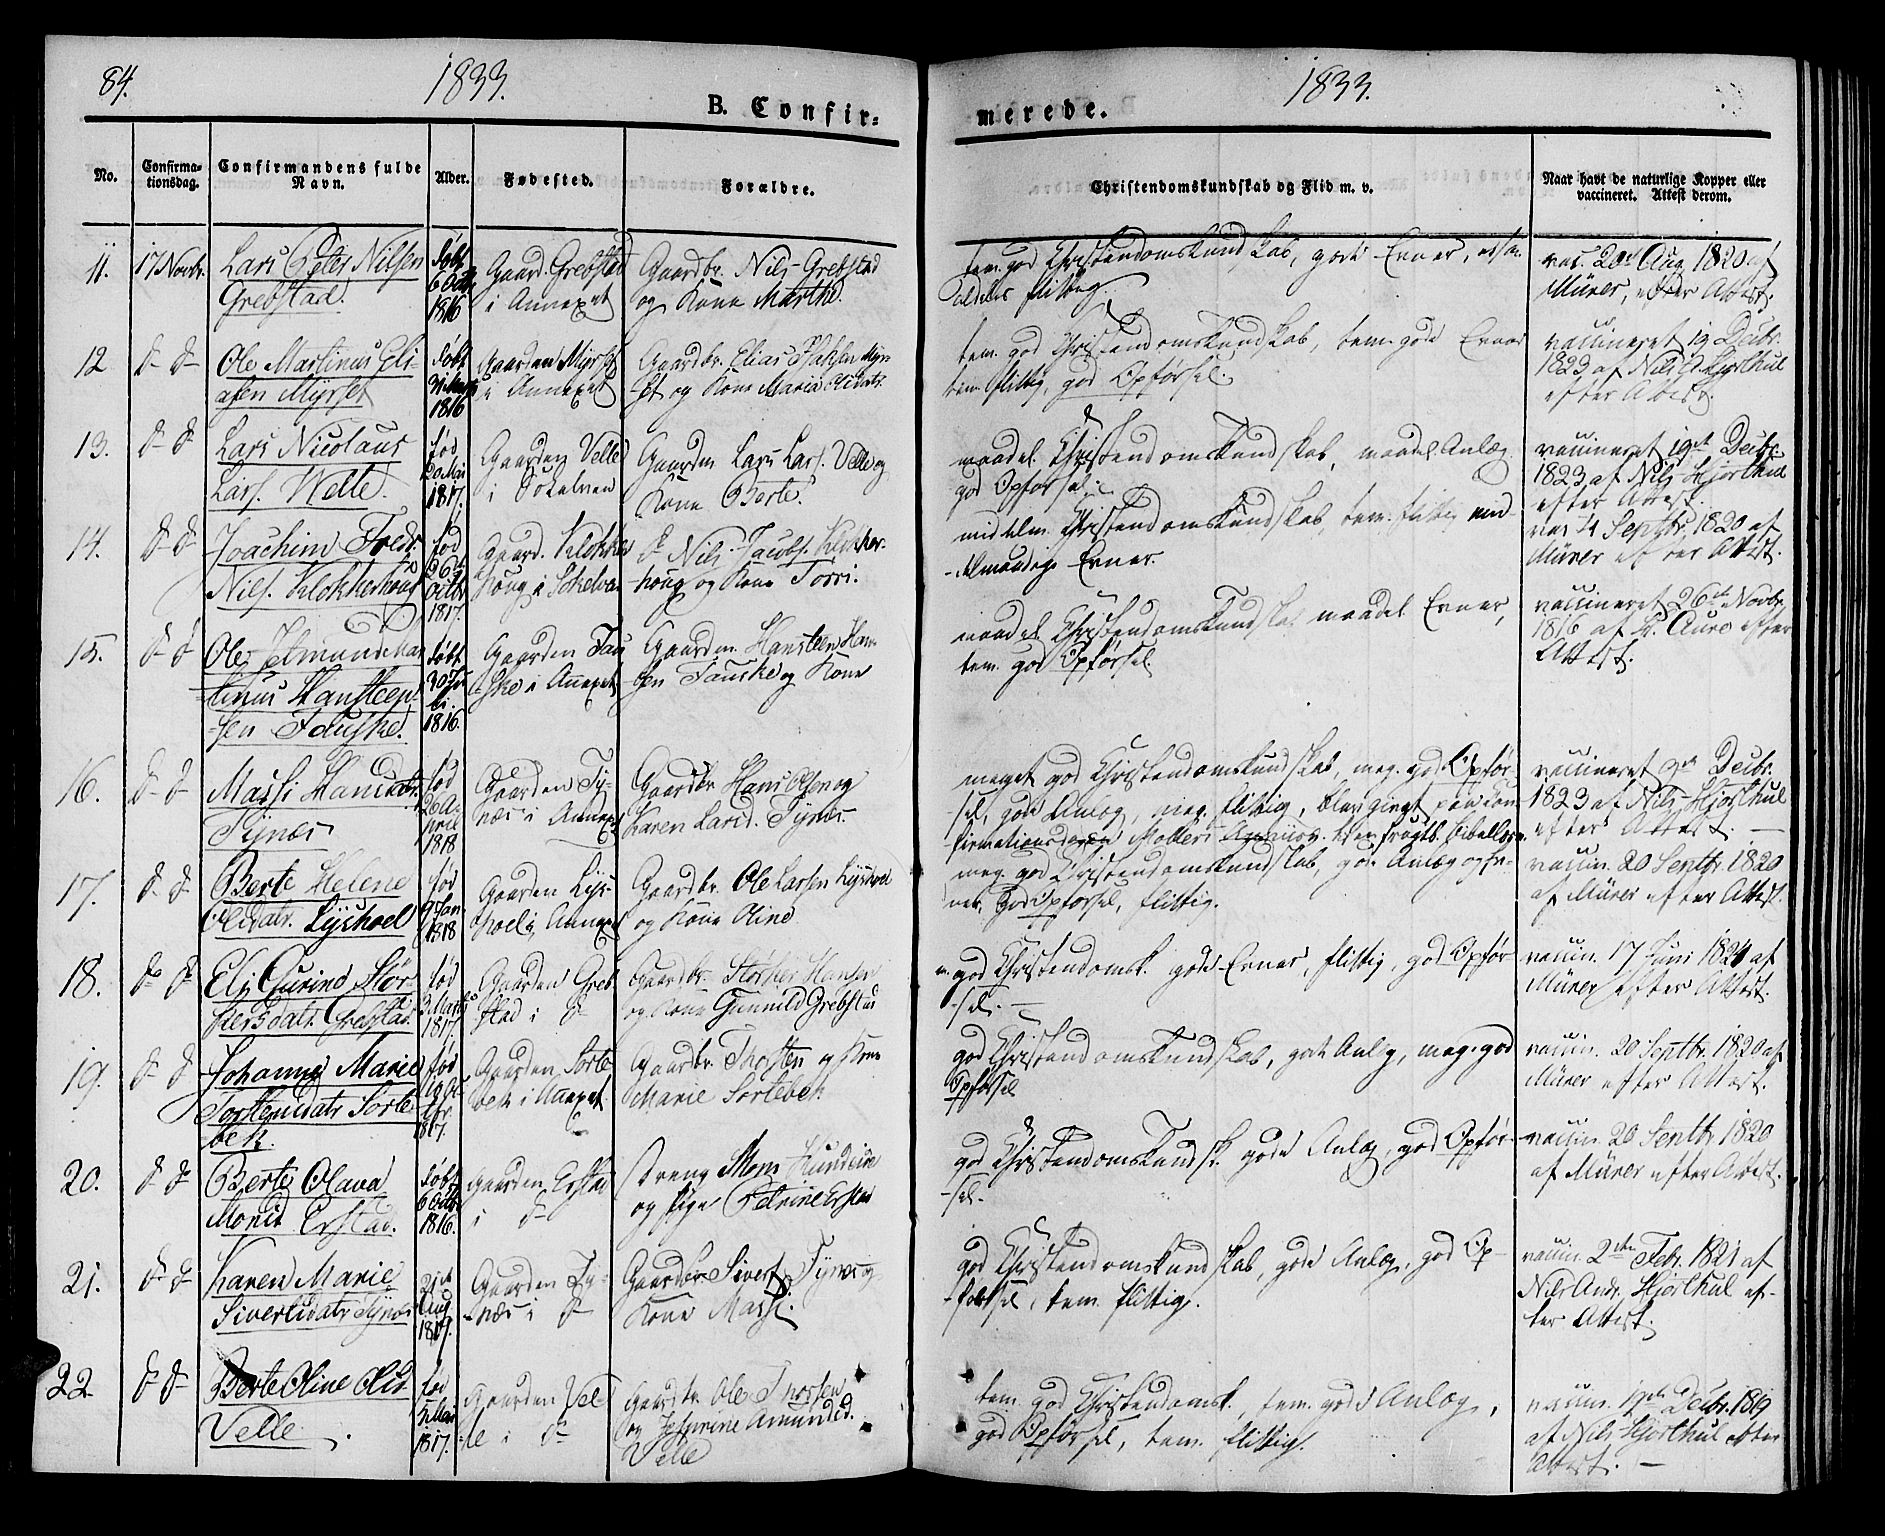 84.
1833.
B. Confir-
1833.
merede.
No.
Confirma-
tionsdag.
Confirmandens fulde
Navn.
Alder.
Fødested.
Forældre.
Christendomskundskab og Flid m. v.
Naar havt de naturlige Kopper eller
vaccineret. Attest derom.
11.
17 Novbr.
Lars Peter Nilsen
Grebstad.
døbt
6 Octbr
1816
Gaard. Grebstad
i Annexet
Gaardbr. Nils Grebstad
og Kone Marthe.
tem. god Christendomskundskab, gode Evner,
flittig.
vac. 20de Aug 1820 af
Mürer, efter Attest.
12
d- d-
Ole Martinus Eli-
asen Myrset
døbt
31 Marts
1816
Gaarden Myrset
i Annexet
Gaardbr. Elias Myr-
set og Kone Maria Olsdatr.
tem. god Christendomskundskab, tem. gode Evner
tem. flittig, god Opførsel.
vaccineret 19 Decbr.
1823 af Nils A. Hjorthul
efter Attest.
13.
d- d-
Lars Nicolaus
Larss. Welle.
fød
20 Mai
1817.
Gaarden Velle
i Sokelven
Gaardm Lars Lars. Velle og
Kone Berte.
maadel. Christendomskundskab, maadel. Anlæg
god Opførsel.
vaccineret 19de Decbr.
1823 af Nils Hjorthul
efter Attest.
14.
d- d-
Joachim Fredr.
Nils. Klokkerhoug
fød
26de
Octbr
1817.
Gaard. Klokker
houg i Sökelven
d- Nils Jacobs. Klokker-
houg og Kone Torri.
middelm. Christendomskundskab, tem. flittig mid-
delmaadige Evner.
vac 4 Septbr 1820 af
Mürer efter Attest.
15.
d- d-
Ole Jetmund Mar
tinus Hansteen-
sen Fauske.
døbt
30 Ju
li.
1816.
Gaarden Fau
ske i Annexet
Gaardm. Hansteen Han
sen Fauske og Kone
maadel. Christendomskundskab maadel Evner,
tem. god Opførsel.
vaccineret 26de Novbr
1816 af K. Aure efter
Attest.
16.
d- d-
Massi Hansdatr.
Tynæs
fød
26 A
pril
1818
Gaarden Ty-
næs i Annexet
Gaardbr Hans Olsen og
Karen Larsd. Tynæs.
meget god Christendomskundskab, meg. god Opfør-
sel, gode Anlæg, meg. flittig, blev givet paa Con
firmationsdagen
vaccineret 9de Decbr.
1823 af Nils Hjorthul
efter Attest.
17.
d- d-
Berte Helene
Olsdatr. Lyshoel
fød
9 Jan.
1818
Gaarden Lys-
hoel i Annexet
Gaardbr. Ole Larsen Lyshoel
og Kone Oline
meg. god Christendomskundskab, gode Anlæg og Ev-
ner, god Opførsel, flittig.
vaccin. 20 Septbr 1820
af Mürer efter Attest.
18.
d- d-
Elj Gurine Stör-
kersdatr. Grebstad.
fød
3 Marts
1817.
Gaarden Greb
stad i d-
Gaardbr. Størker Hansen
og Kone Gunnild Grebstad
m. god Christendomsk. gode Evner, flittig, god Opfør-
sel.
vaccin. 17 Juni 1824 af
Mürer efter Attest.
19.
d- d-
Johanne Marie
Torstensdatr Sorte-
bek.
fød
19 Oc
tbr.
1817.
Gaarden Sorte
bek i Annexet
Gaardbr. Thosten og Kone
Marie Sortebek
god Christendomskundskab, gode Anlæg, meg. god
Opførsel
vaccin. 20 Septbr. 1820 af
Mürer efter Attest.
20.
d- d-
Berte Olava
Monsd. Erstad.
døbt
6 Octbr
1816.
Gaarden Erstad
i d-
Dreng Mons Hundeide
og Pige Petrine Erstad
god Christendomskundsk. gode Anlæg, god Opfør-
sel.
vaccin. 20 Septbr 1820
af Mürer efter Attest.
21.
d- d-
Karen Marie
Sivertsdatr Tynæs
21de
Aug
1817.
Gaarden Ty-
næs i d-
Gaardbr Sivert Tynæs og
Kone Massi.
god Christendomskundskab, gode Anlæg, god Op-
førsel, tem. flittig.
vaccin. 2den Febr. 1821 af
Nils Andr. Hjorthul ef-
ter Attest.
22
d- d-
Berte Oline Olsd.
Velle
fød
5 Mai
1817.
Gaarden Vel-
le i d-
Gaardbr. Ole Thosten
og Jesperine Amundsd.
Velle
tem. god Christendomsk., tem. gode Anlæg,
god Opførsel, tem. flittig.
vaccin. 19de Decbr. 1819
af Nils Hjorthul efter
Attest.